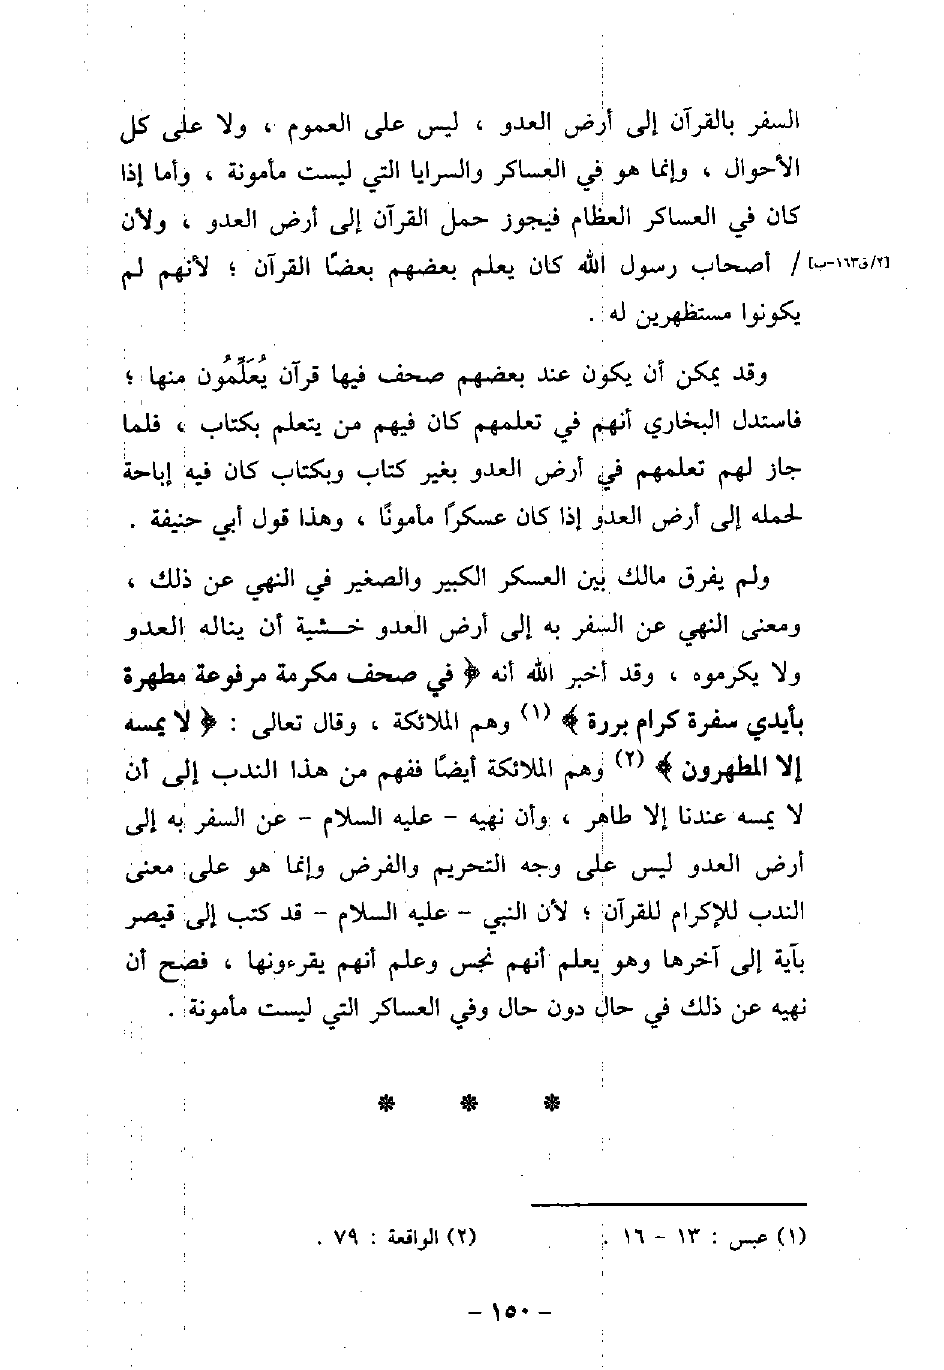 السفر بالقرآن إلى أرض العدو ، ليس على العموم ، ولا على كل
الأحوال ، وإنما هو في العساكر والسرايا التي ليست مأمونة ، وأما إذا
كان في العساكر العظام فيجوز حمل القرآن إلى أرض العدو ، ولأن
[٢/ق١٦٣-ب] / أصحاب رسول الله كان يعلم بعضهم بعضًا القرآن ؛ لأنهم لم
يكونوا مستظهرين له .
وقد يمكن أن يكون عند بعضهم صحف فيها قرآن يُعَلِّمُون منها ؛
فاستدل البخاري أنهم في تعلمهم كان فيهم من يتعلم بكتاب ، فلما
جاز لهم تعلمهم في أرض العدو بغير كتاب وبكتاب كان فيه إباحة
لحمله إلى أرض العدو إذا كان عسكرًا مأمونًا ، وهذا قول أبي حنيفة .
ولم يفرق مالك بين العسكر الكبير والصغير في النهي عن ذلك ،
ومعنى النهي عن السفر به إلى أرض العدو خــشية أن يناله العدو
ولا يكرموه ، وقد أخبر الله أنه ﴿ في صحف مكرمة مرفوعة مطهرة
بأيدي سفرة كرام بررة ﴾ (١) وهم الملائكة ، وقال تعالى : ﴿ لا يمسه
إلا المطهرون ﴾ (٢) وهم الملائكة أيضًا ففهم من هذا الندب إلى أن
لا يمسه عندنا إلا طاهر ، وأن نهيه - عليه السلام - عن السفر به إلى
أرض العدو ليس على وجه التحريم والفرض وإنما هو على معنى
الندب للإكرام للقرآن ؛ لأن النبي - عليه السلام - قد كتب إلى قيصر
بآية إلى آخرها وهو يعلم أنهم نجس وعلم أنهم يقرءونها ، فصح أن
نهيه عن ذلك في حال دون حال وفي العساكر التي ليست مأمونة .
* * *
(١) عبس : ١٣ - ١٦ . (٢) الواقعة : ٧٩ .
- ١٥٠ -